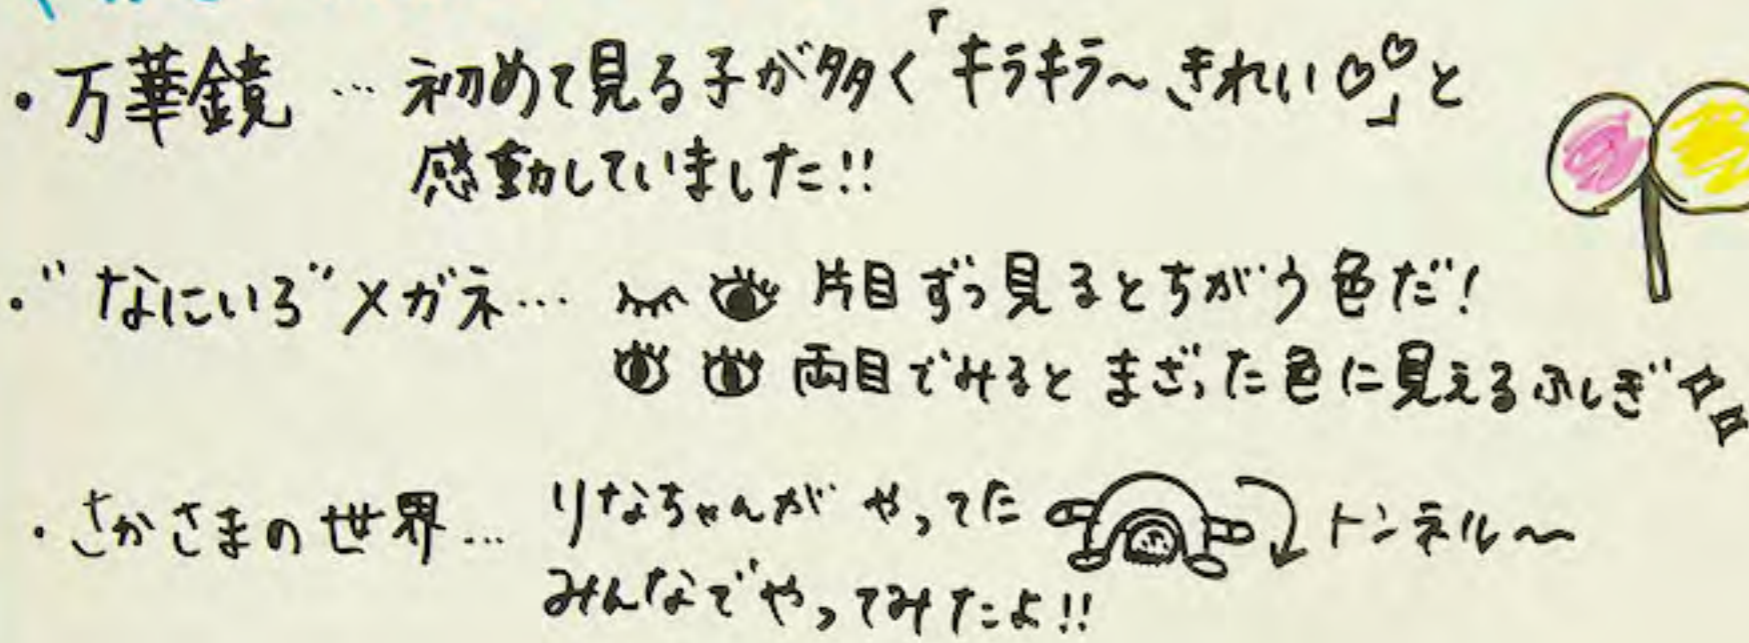 ・万華鏡 … 初めて見る子が多く「キラキラ〜きれい♡♡」と
感動していました!!
・"なにいろ"メガネ… 片目ずつ見るとちがう色だ!
両目でみると まざった色に見えるふしぎ
・さかさまの世界… りなちゃんが やってた トンネル〜
みんなでやってみたよ!!